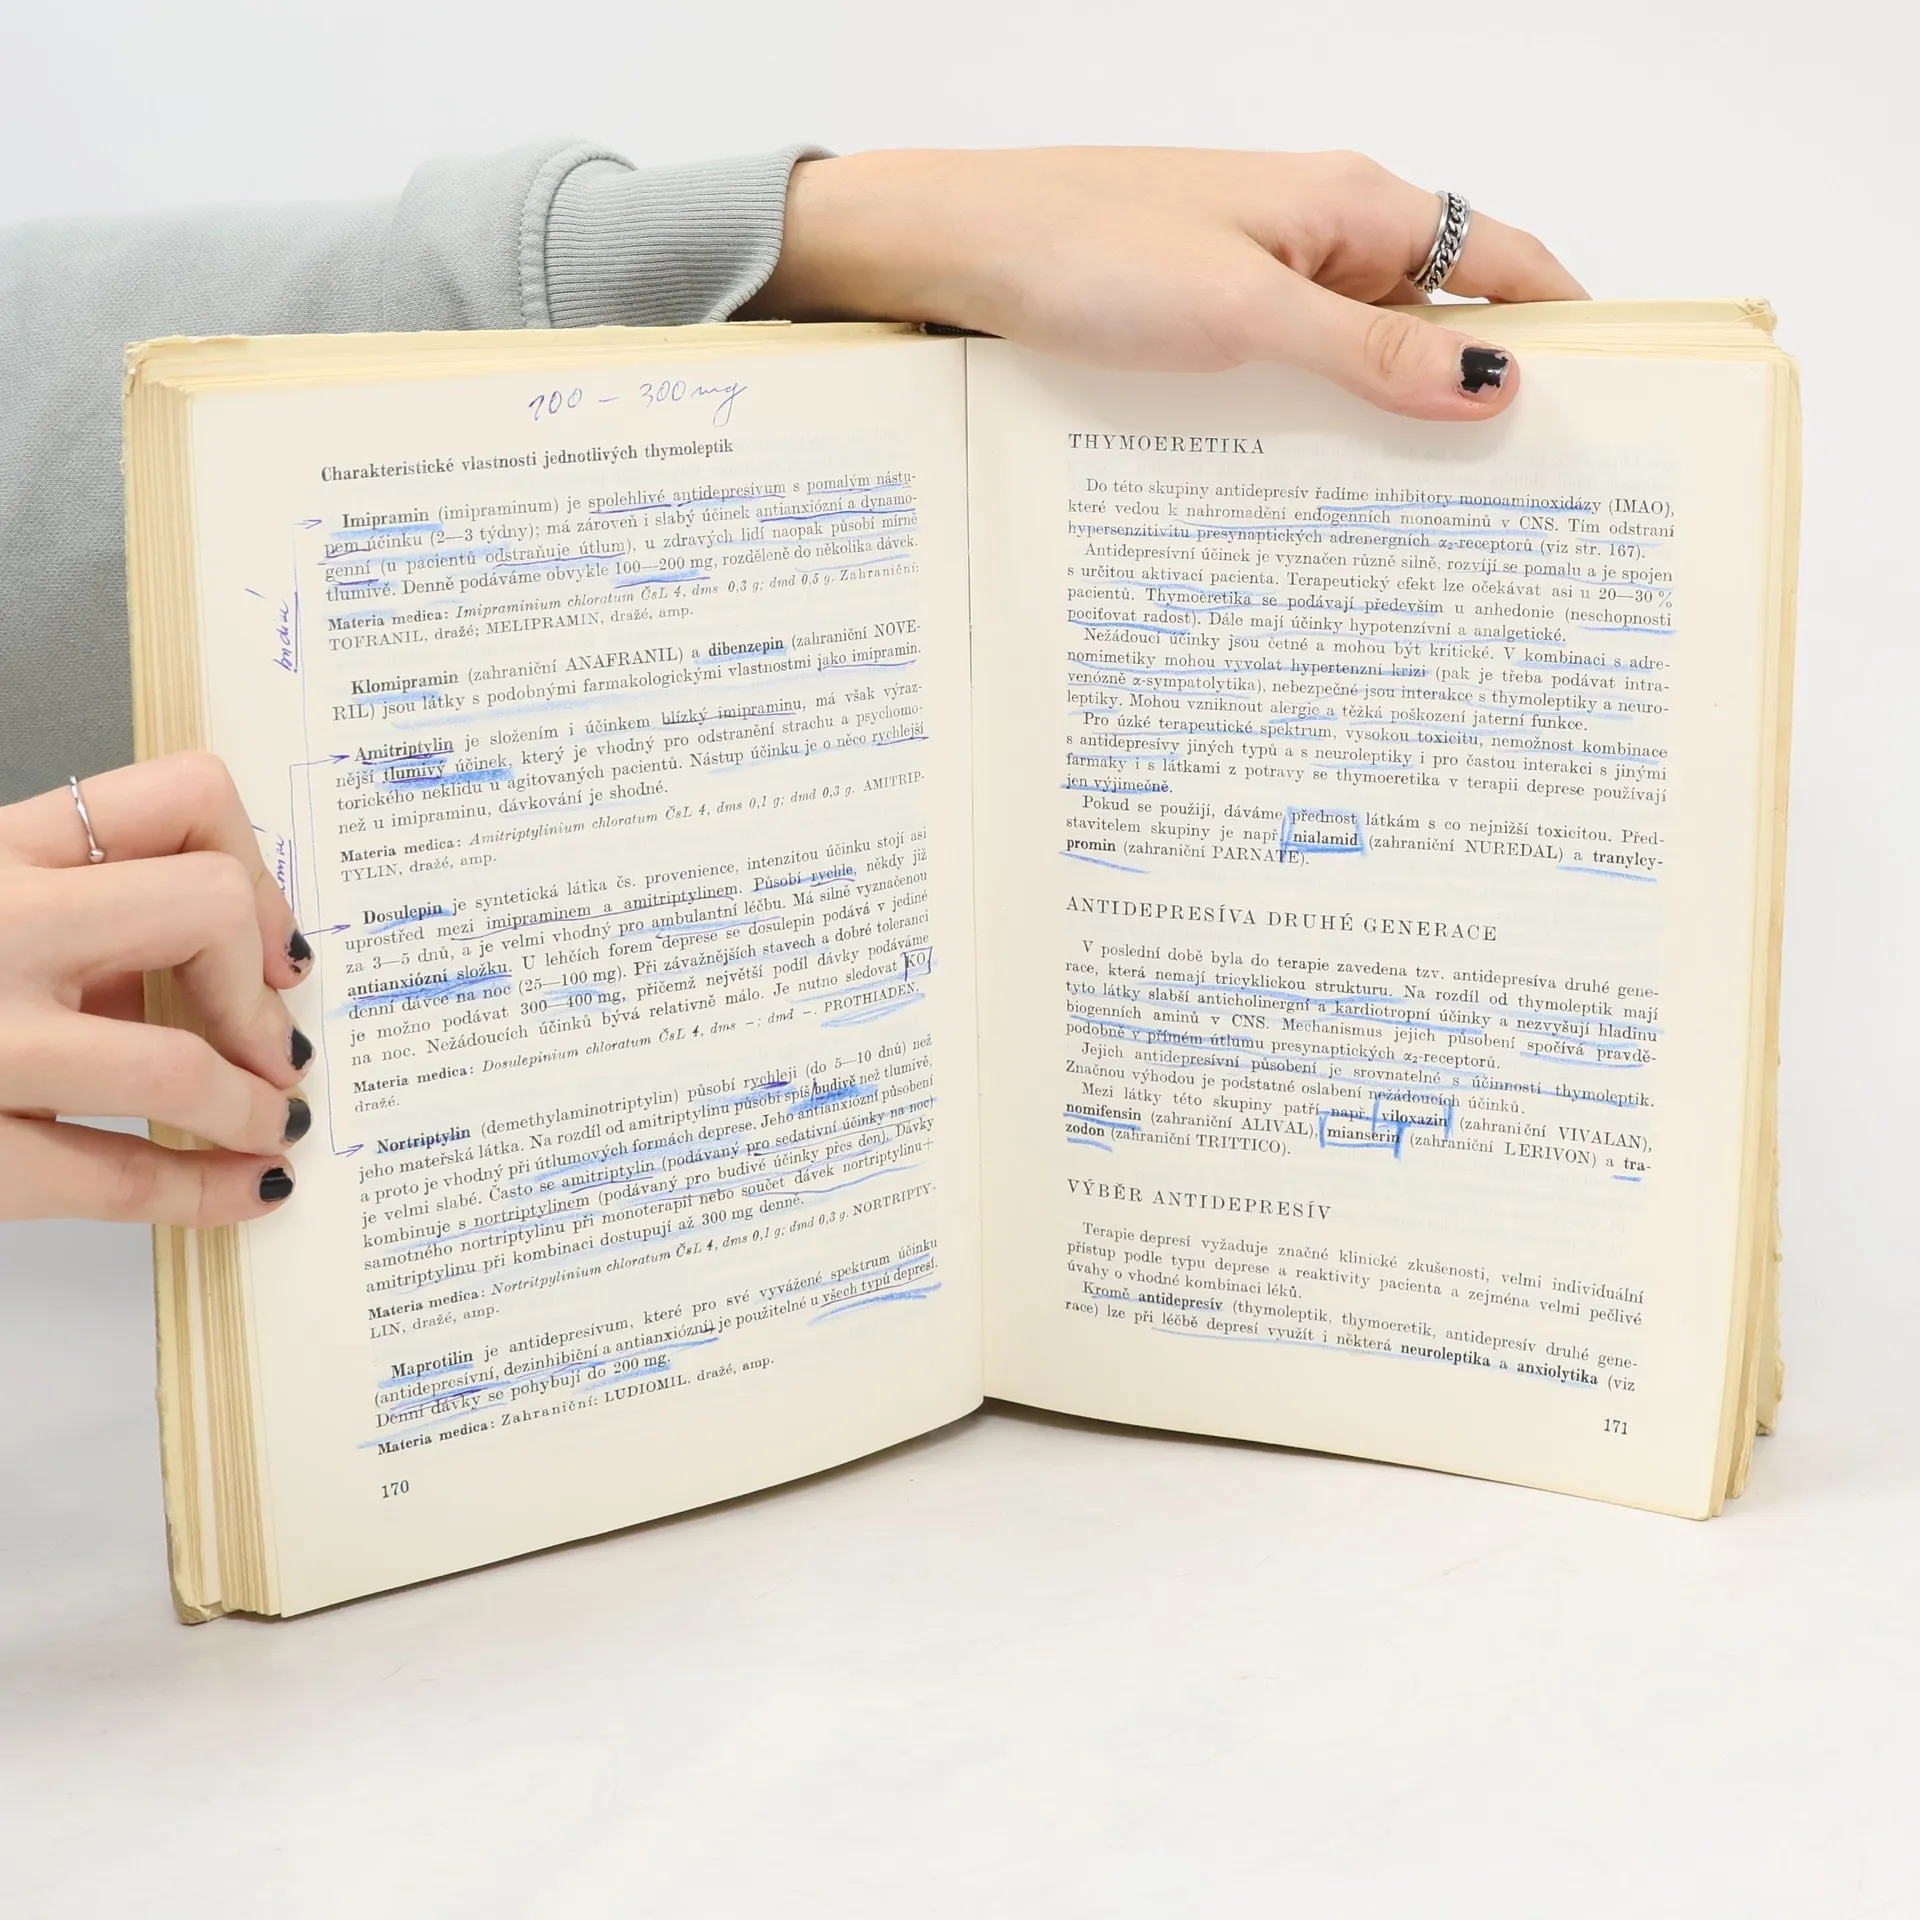 100 – 300 mg
Charakteristické vlastnosti jednotlivých thymoleptik
Imipramin (imipraminum) je spolehlivé antidepresívum s pomalým nástu-
pem účinku (2—3 týdny); má zároveň i slabý účinek antianxiózní a dynamo-
genní (u pacientů odstraňuje útlum), u zdravých lidí naopak působí mírně
tlumivě. Denně podáváme obvykle 100—200 mg, rozděleně do několika dávek.
Materia medica: Imipraminium chloratum ČsL 4, dms 0,3 g; dmd 0,5 g. Zahraniční:
TOFRANIL, dražé; MELIPRAMIN, dražé, amp.
budivé!
Klomipramin (zahraniční ANAFRANIL) a dibenzepin (zahraniční NOVE-
RIL) jsou látky s podobnými farmakologickými vlastnostmi jako imipramin.
Amitriptylin je složením i účinkem blízký imipraminu, má však výraz-
nější tlumivý účinek, který je vhodný pro odstranění strachu a psychomo-
torického neklidu u agitovaných pacientů. Nástup účinku je o něco rychlejší
než u imipraminu, dávkování je shodné.
Materia medica: Amitriptylinium chloratum ČsL 4, dms 0,1 g; dmd 0,3 g. AMITRIP-
TYLIN, dražé, amp.
Dosulepin je syntetická látka čs. provenience, intenzitou účinku stojí asi
uprostřed mezi imipraminem a amitriptylinem. Působí rychle, někdy již
za 3—5 dnů, a je velmi vhodný pro ambulantní léčbu. Má silně vyznačenou
antianxiózní složku. U lehčích forem deprese se dosulepin podává v jediné
denní dávce na noc (25—100 mg). Při závažnějších stavech a dobré toleranci
je možno podávat 300—400 mg, přičemž největší podíl dávky podáváme
na noc. Nežádoucích účinků bývá relativně málo. Je nutno sledovat KO.
Materia medica: Dosulepinium chloratum ČsL 4, dms –; dmd –. PROTHIADEN,
dražé.
Nortriptylin (demethylaminotriptylin) působí rychleji (do 5—10 dnů) než
jeho mateřská látka. Na rozdíl od amitriptylinu působí spíš budivě než tlumivě,
a proto je vhodný při útlumových formách deprese. Jeho antianxiózní působení
je velmi slabé. Často se amitriptylin (podávaný pro sedativní účinky na noc)
kombinuje s nortriptylinem (podávaný pro budivé účinky přes den). Dávky
samotného nortriptylinu při monoterapii nebo součet dávek nortriptylinu+
amitriptylinu při kombinaci dostupují až 300 mg denně.
Materia medica: Nortritpylinium chloratum ČsL 4, dms 0,1 g; dmd 0,3 g. NORTRIPTY-
LIN, dražé, amp.
Maprotilin je antidepresívum, které pro své vyvážené spektrum účinku
(antidepresívní, dezinhibiční a antianxiózní) je použitelné u všech typů depresí.
Denní dávky se pohybují do 200 mg.
Materia medica: Zahraniční: LUDIOMIL. dražé, amp.
170
THYMOERETIKA
Do této skupiny antidepresív řadíme inhibitory monoaminoxidázy (IMAO),
které vedou k nahromadění endogenních monoaminů v CNS. Tím odstraní
hypersenzitivitu presynaptických adrenergních α₂-receptorů (viz str. 167).
Antidepresívní účinek je vyznačen různě silně, rozvíjí se pomalu a je spojen
s určitou aktivací pacienta. Terapeutický efekt lze očekávat asi u 20—30 %
pacientů. Thymoeretika se podávají především u anhedonie (neschopnosti
pociťovat radost). Dále mají účinky hypotenzívní a analgetické.
Nežádoucí účinky jsou četné a mohou být kritické. V kombinaci s adre-
nomimetiky mohou vyvolat hypertenzní krizi (pak je třeba podávat intra-
venózně α-sympatolytika), nebezpečné jsou interakce s thymoleptiky a neuro-
leptiky. Mohou vzniknout alergie a těžká poškození jaterní funkce.
Pro úzké terapeutické spektrum, vysokou toxicitu, nemožnost kombinace
s antidepresívy jiných typů a s neuroleptiky i pro častou interakci s jinými
farmaky i s látkami z potravy se thymoeretika v terapii deprese používají
jen výjimečně.
Pokud se použijí, dáváme přednost látkám s co nejnižší toxicitou. Před-
stavitelem skupiny je např. nialamid (zahraniční NUREDAL) a tranylcy-
promin (zahraniční PARNATE).
ANTIDEPRESÍVA DRUHÉ GENERACE
V poslední době byla do terapie zavedena tzv. antidepresíva druhé gene-
race, která nemají tricyklickou strukturu. Na rozdíl od thymoleptik mají
tyto látky slabší anticholinergní a kardiotropní účinky a nezvyšují hladinu
biogenních aminů v CNS. Mechanismus jejich působení spočívá pravdě-
podobně v přímém útlumu presynaptických α₂-receptorů.
Jejich antidepresívní působení je srovnatelné s účinností thymoleptik.
Značnou výhodou je podstatné oslabení nežádoucích účinků.
Mezi látky této skupiny patří např. viloxazin (zahraniční VIVALAN),
nomifensin (zahraniční ALIVAL), mianserin (zahraniční LERIVON) a tra-
zodon (zahraniční TRITTICO).
VÝBĚR ANTIDEPRESÍV
Terapie depresí vyžaduje značné klinické zkušenosti, velmi individuální
přístup podle typu deprese a reaktivity pacienta a zejména velmi pečlivé
úvahy o vhodné kombinaci léků.
Kromě antidepresív (thymoleptik, thymoeretik, antidepresív druhé gene-
race) lze při léčbě depresí využít i některá neuroleptika a anxiolytika (viz
171